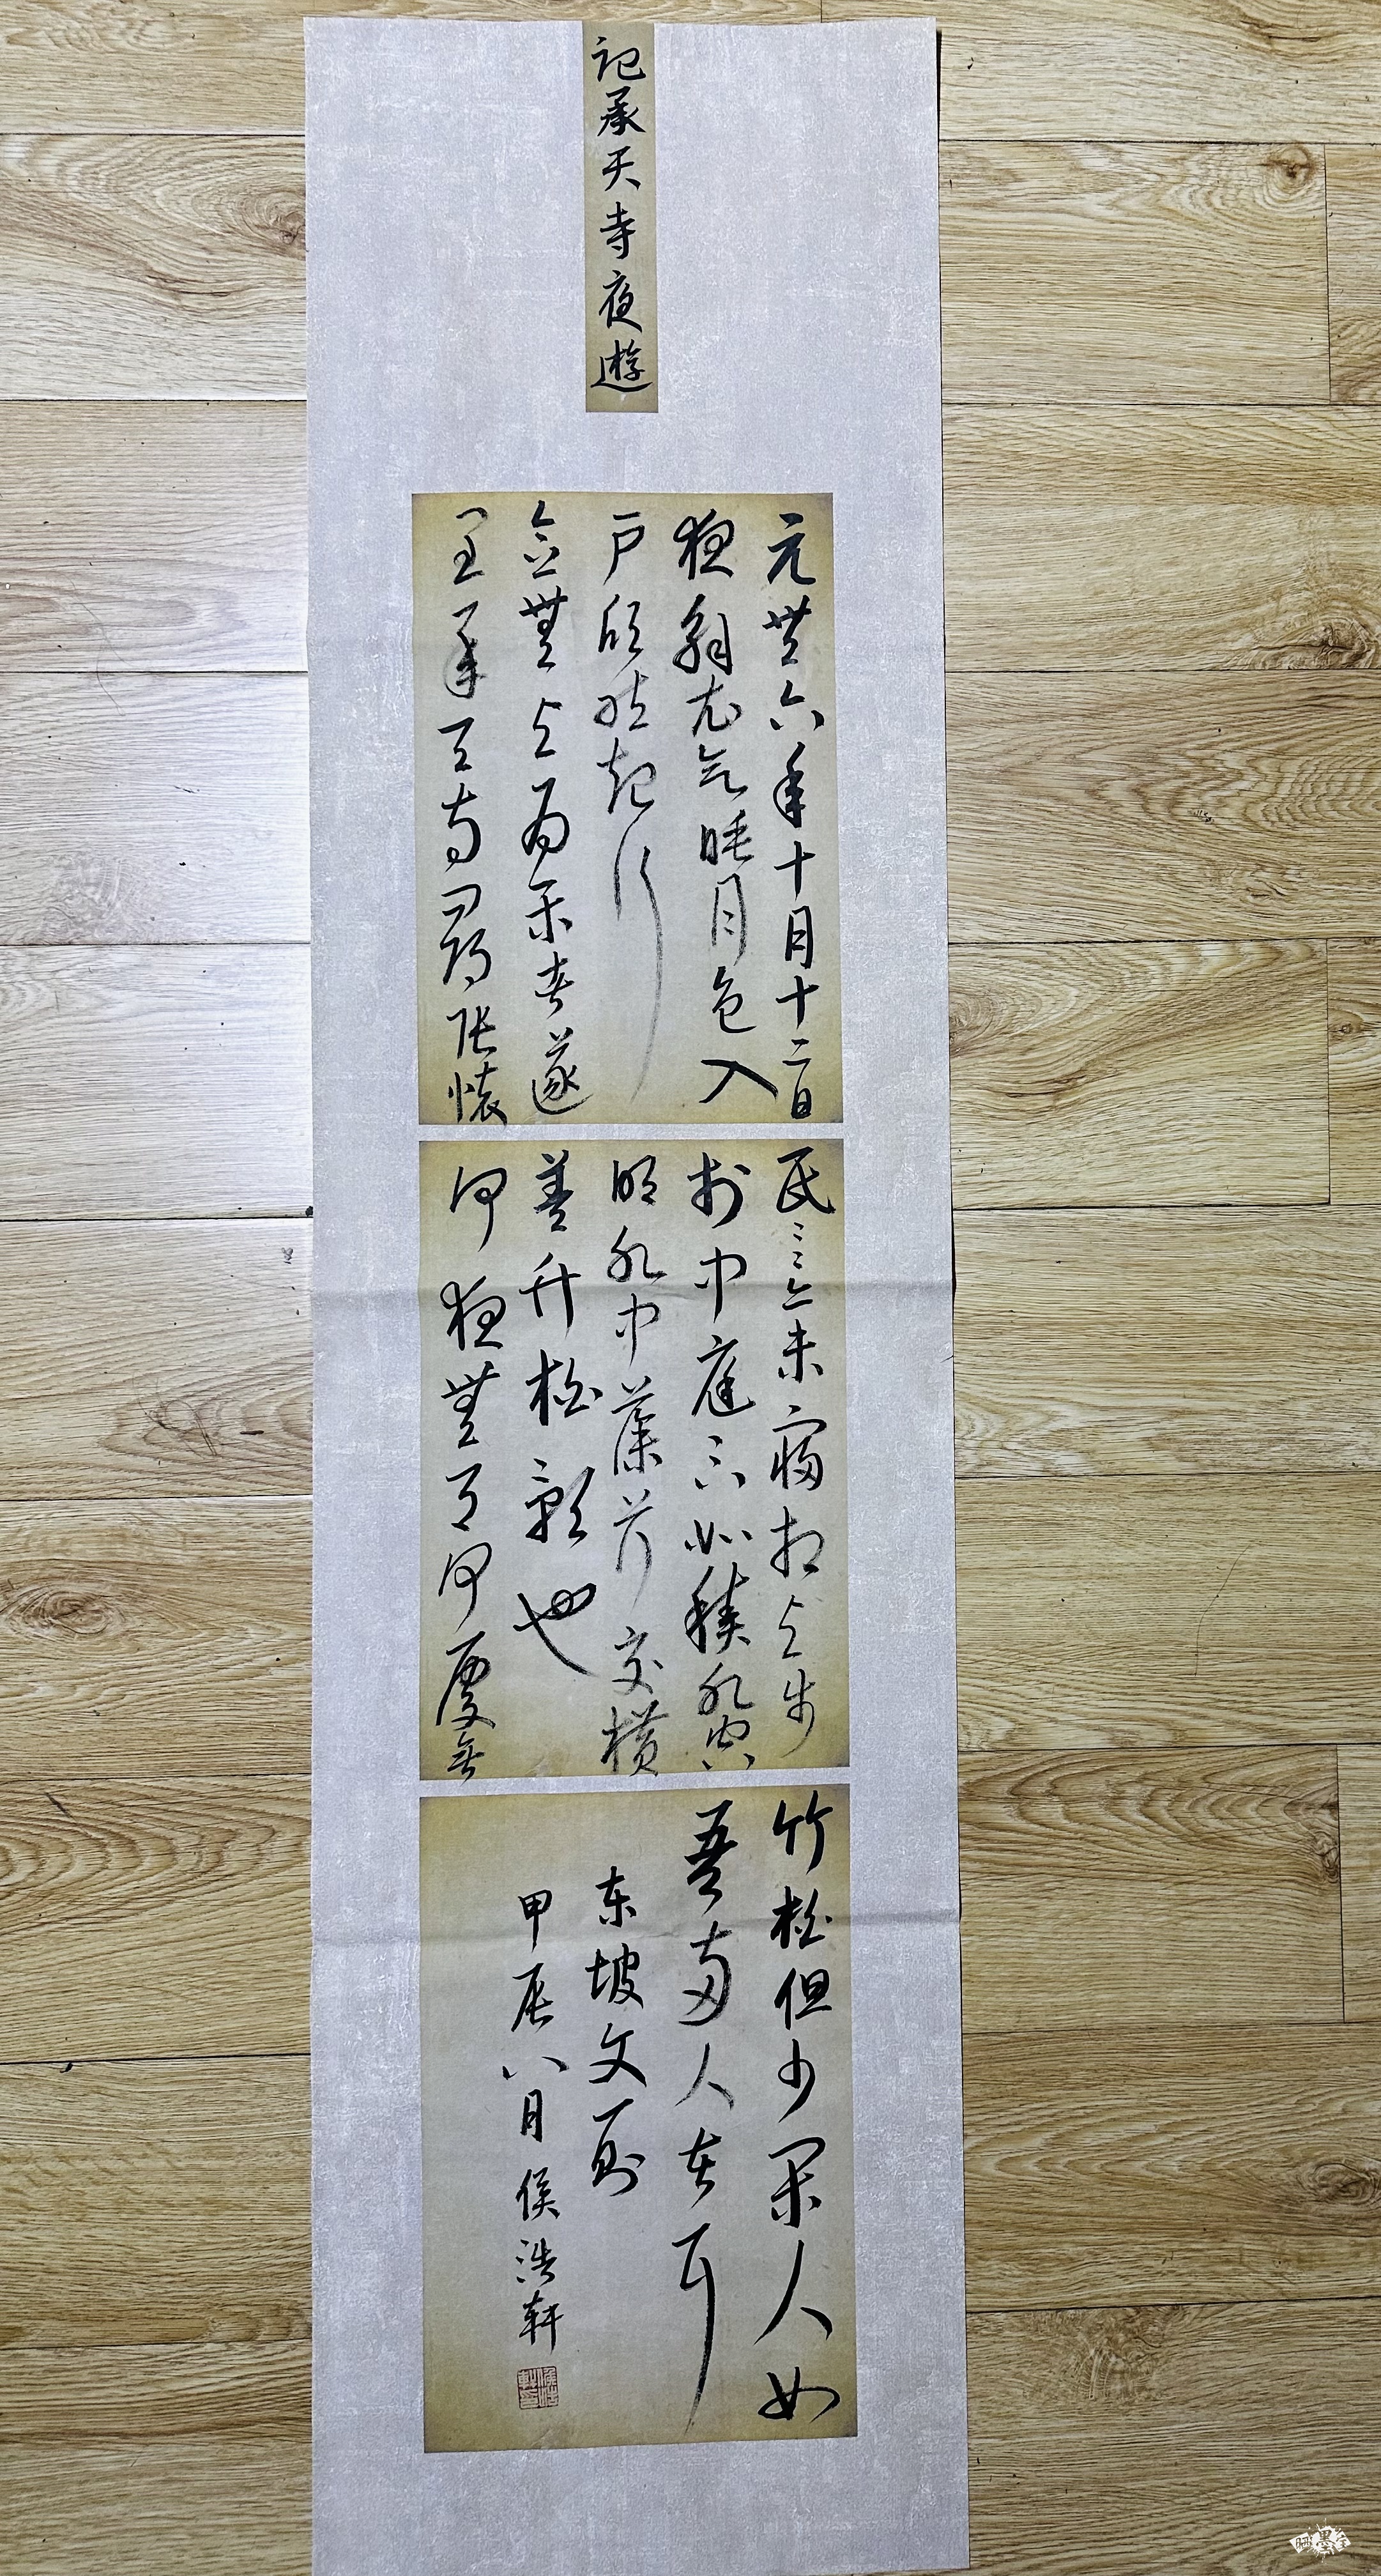 记承天寺夜遊
元豐六年十月十二日
夜解衣欲睡月色入
戶欣然起行
念無与为樂者遂
至承天寺尋張懷
民〻亦未寢相与步
於中庭〻下如積水空
明水中藻荇交橫
蓋竹柏影也
何夜無月何處無
竹柏但少閑人如
吾兩人者耳
东坡文一则
甲辰八月侯浩轩
晒墨宝